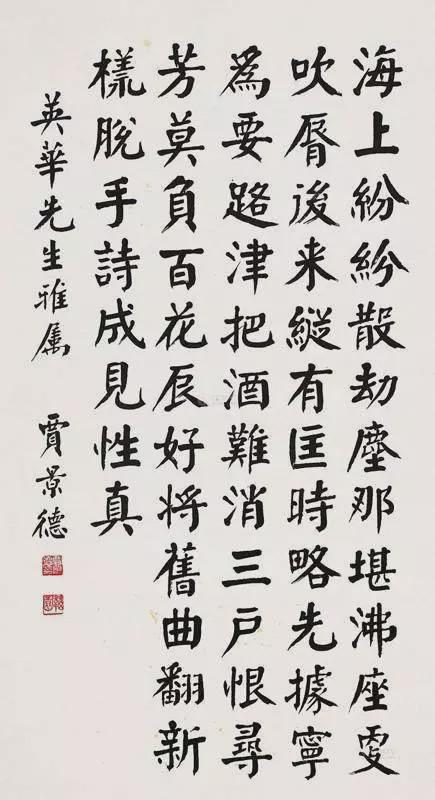 海上紛紛散劫塵那堪沸座更
吹脣後来縱有匡時略先據寧
為要路津把酒難消三戶恨尋
芳莫負百花辰好将舊曲翻新
樣脫手詩成見性真
英華先生雅属 賈景德